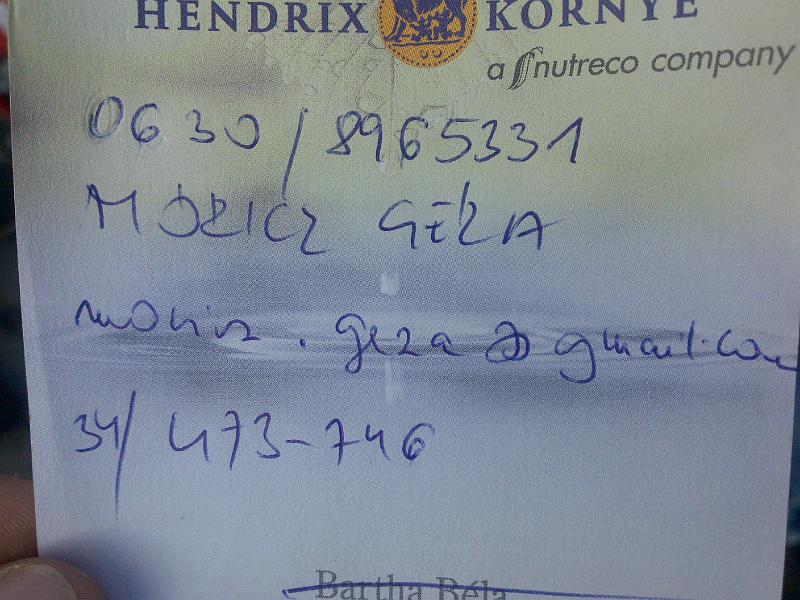 HENDRIX KÖRNYE
a nutreco company
0630/8965331
MÓRICZ GÉZA
moricz.geza@gmail.com
34/473-746
Bartha Béla